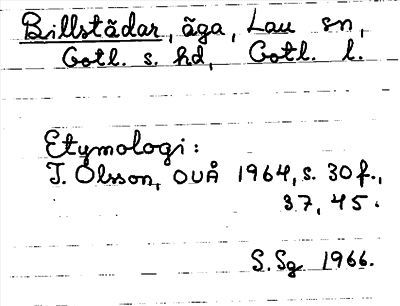 Billstädar, äga, Lau sn,
Gotl. s. hd, Gotl. l.
Etymologi:
I. Olsson, OUÅ 1964, s. 30 f.,
37, 45.
S. Sg 1966.